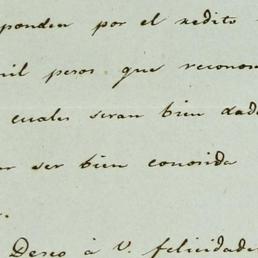 sponden por el redito
mil pesos que recono
cuales seran bien dad
ser bien conosida
Deseo à V. felicidade